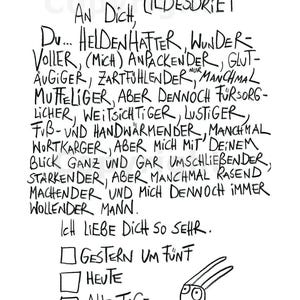 AN DICH,
DU... HELDENHAFTER, WUNDER-
VOLLER, (MICH) ANPACKENDER, GLUT-
ÄUGIGER, ZARTFÜHLENDER, NUR MANCHMAL
MUFFELIGER, ABER DENNOCH FÜRSORG-
LICHER, WEITSICHTIGER, LUSTIGER,
FUß- UND HANDWÄRMENDER, MANCHMAL
WORTKARGER, ABER MICH MIT DEINEM
BLICK GANZ UND GAR UMSCHLIEßENDER,
STARKENDER, ABER MANCHMAL RASEND
MACHENDER UND MICH DENNOCH IMMER
WOLLENDER MANN.
ICH LIEBE DICH SO SEHR.
GESTERN UM FÜNF
HEUTE